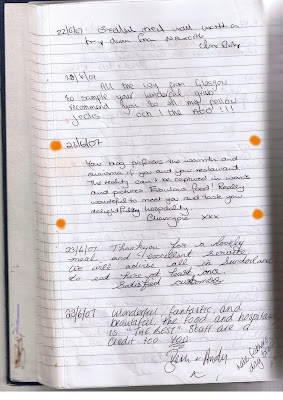 22/6/07 Excellent meal well worth a
trip down from Newcastle
Chris
22/6/07
All the way from Glasgow
to sample your wonderful grub
recommend you to all my fellow
jocks och! the noo!!!
22/6/07
Your blog prefaces the warmth and
charisma of you and your restaurant
The reality can't be captured in words
and pictures. Fabulous food! Really
wonderful to meet you and taste your
delightful hospitality
xxx
23/6/07 Thankyou for a lovely
meal and excellent service
We will advise all in Sunderland
to eat here at least once
Satisfied customers
23/6/07 Wonderful, fantastic, and
beautiful, the food and hospitality
is "THE BEST" Staff are a
credit too YOU
& Andy